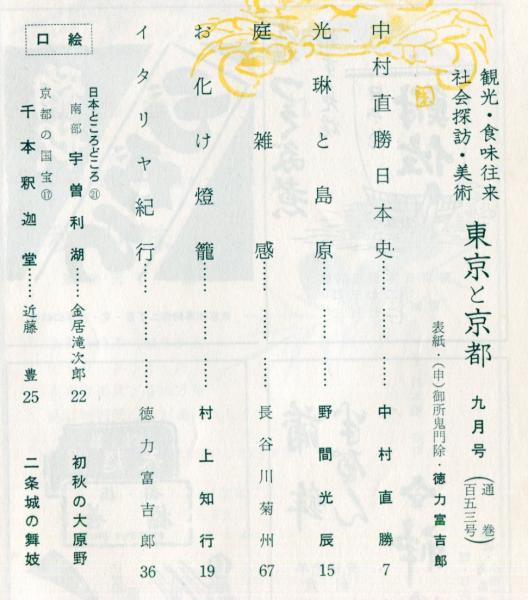 観光・食味往来
社会探訪・美術
東京と京都
九月号
(通巻
百五三号)
表紙・(申)御所鬼門除・徳力富吉郎
中村直勝日本史………………中村直勝 7
光琳と島原………………野間光辰 15
庭雑感………………長谷川菊州 67
お化け燈籠………………村上知行 19
イタリヤ紀行………………徳力富吉郎 36
口絵
日本ところどころ㉑
南部 宇曽利湖……金居滝次郎 22
初秋の大原野
京都の国宝⑰
千本釈迦堂……近藤豊 25
二条城の舞妓